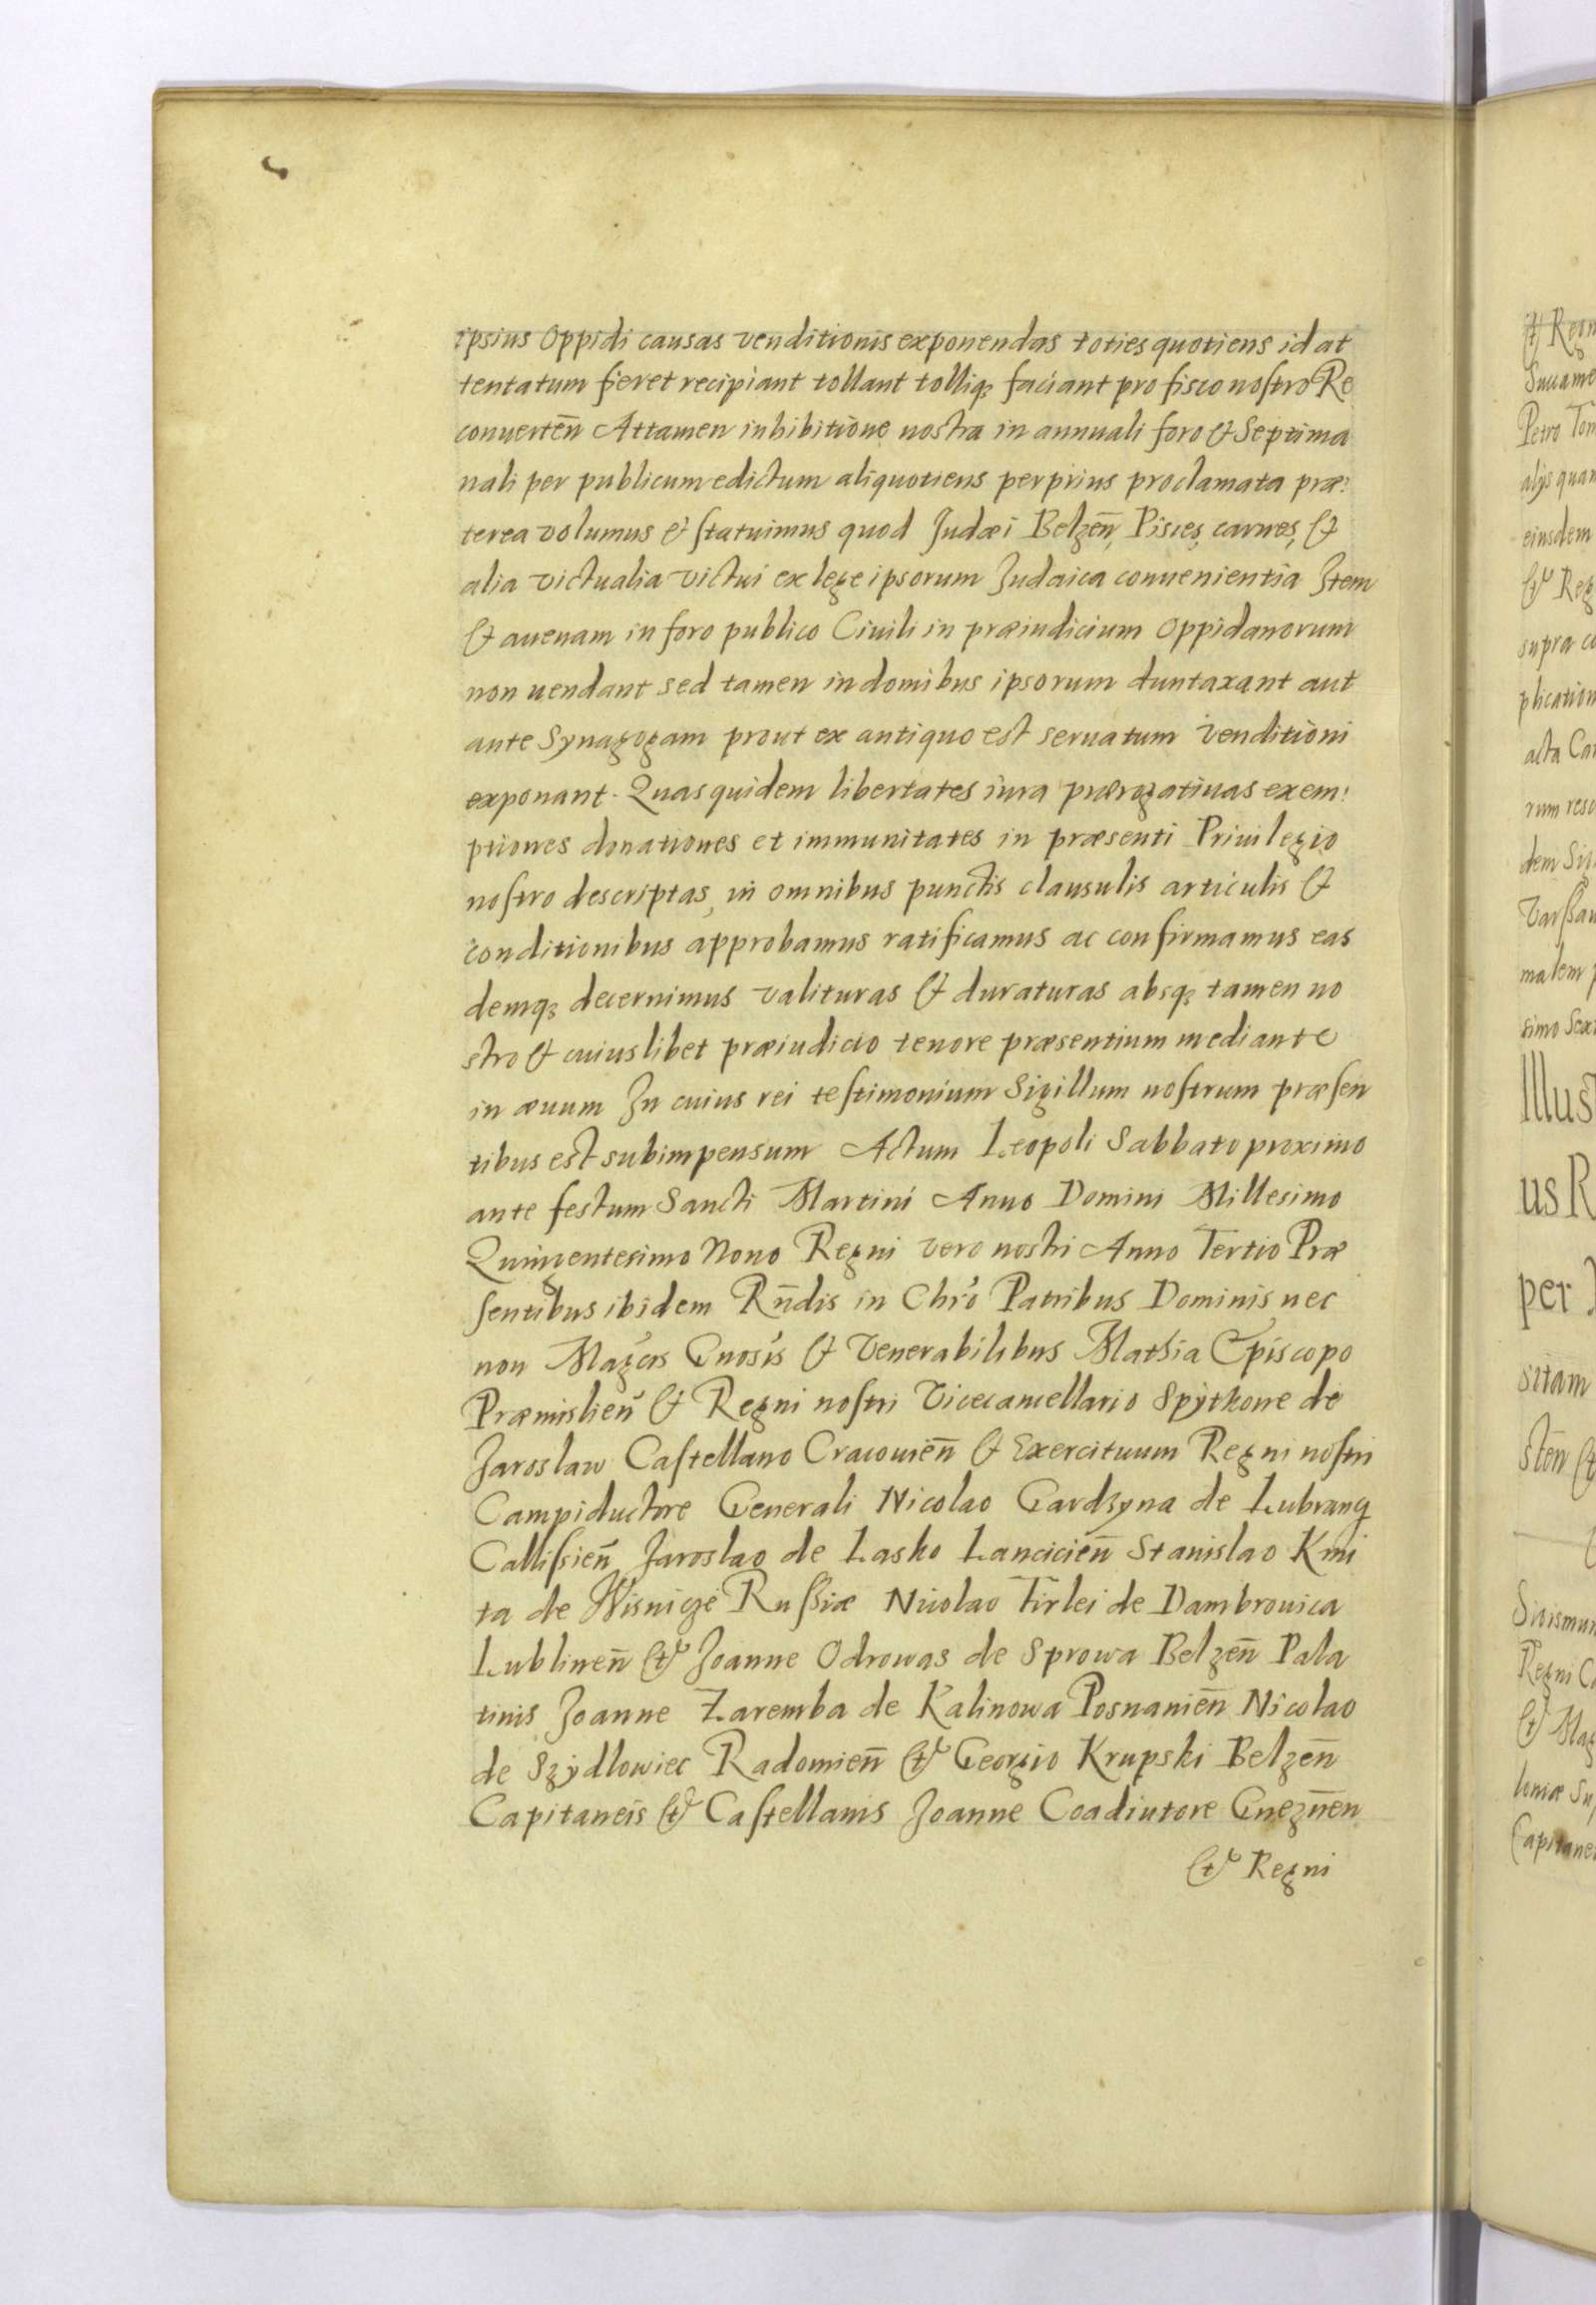 ipsius Oppidi causas venditionis exponendas toties quotiens id at
tentatum fieret recipiant tollant tolliqȝ faciant pro fisco nostro Re
conuerteñ Attamen inhibitione nostra in annuali foro & Septima
nali per publicum edictum aliquotiens perprius proclamata præ:
terea volumus & statuimus quod Judæi Belzeñ, Pisces, carnes, &
alia victualia victui ex lege ipsorum Judaica conuenientia Item
& auenam in foro publico Ciuili in præiudicium Oppidanorum
non uendant sed tamen in domibus ipsorum duntaxant aut
ante Synagogam prout ex antiquo est seruatum venditioni
exponant. Quas quidem libertates iura prærogatiuas exem:
ptiones donationes et immunitates in præsenti Priuilegio
nostro descriptas, in omnibus punctis clausulis articulis &
conditionibus approbamus ratificamus ac confirmamus eas
demqȝ decernimus valituras & duraturas absqȝ tamen no
stro & cuiuslibet præiudicio tenore præsentium mediante
in æuum In cuius rei testimonium Sigillum nostrum præsen
tibus est subimpensum Actum Leopoli Sabbato proximo
ante festum Sancti Martini Anno Domini Millesimo
Quingentesimo Nono Regni vero nostri Anno Tertio Præ
sentibus ibidem Rñdis in Chro Patribus Dominis nec
non Magcis Gnosis & Venerabilibus Mathia Episcopo
Præmislieñ & Regni nostri Vicecancellario Spythone de
Jaroslaw Castellano Cracouieñ & Exercituum Regni nostri
Campiductore Generali Nicolao Gardzyna de Lubrancz
Callissieñ Jaroslao de Lasko Lancicieñ Stanislao Kmi
ta de Wisnicze Russiæ Nicolao Firlei de Dambrouica
Lublineñ & Joanne Odrowas de Sprowa Belzeñ Pala
tinis Joanne Zaremba de Kalinowa Posnanieñ Nicolao
de Szydlowiec Radomieñ & Georgio Krupski Belzeñ
Capitaneis & Castellanis Joanne Coadiutore Gnezñen
& Regni